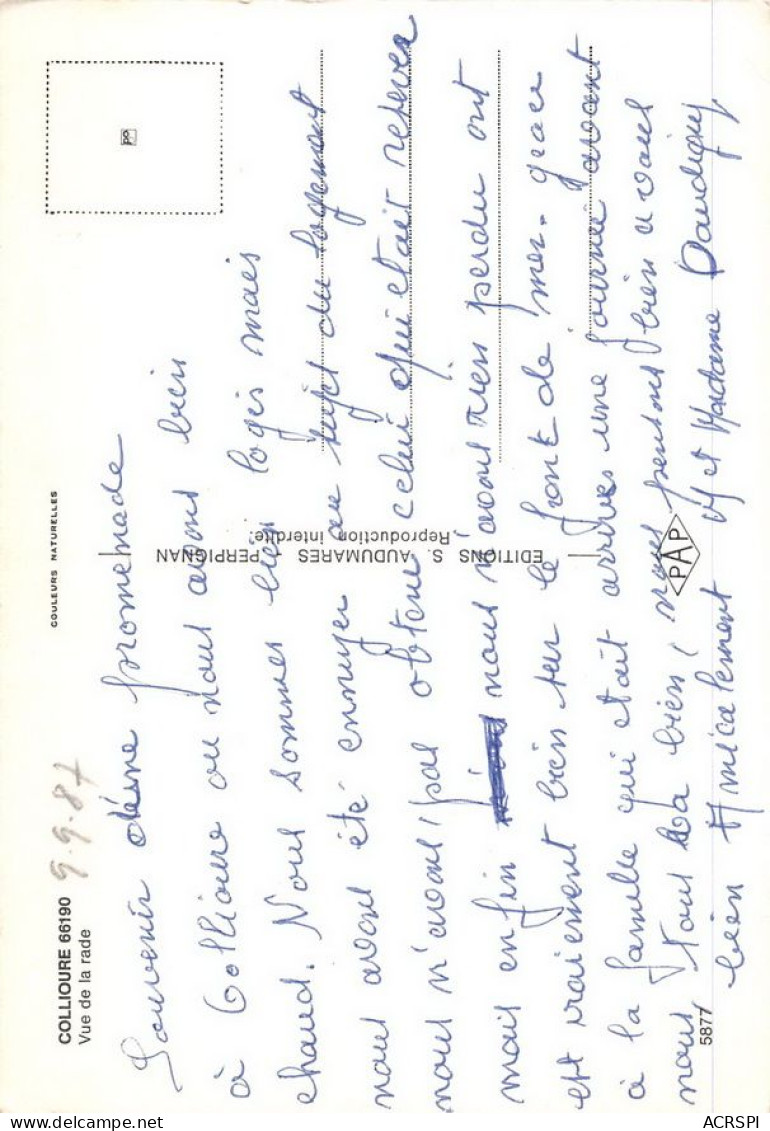 COLLIOURE 66190
Vue de la rade
9.9.87
COULEURS NATURELLES
Souvenir d'une promenade
à Collioure ou nous avons bien
chaud. Nous sommes bien logés mais
nous avons été ennuyer au sujet du logement
nous n'avons pas obtenu celui qui était reservé
mais enfin nous n'avons rien perdu ont
est vraiement bien sur le front de mer. grace
à la famille qui était arrivés une journée avant
nous, Tout va bien, nous pensons bien a vous
bien Amicalement M et Madame Daudigny
EDITIONS S. AUDUMARES - PERPIGNAN
Reproduction interdite.
PAP
5877
ACRSPI